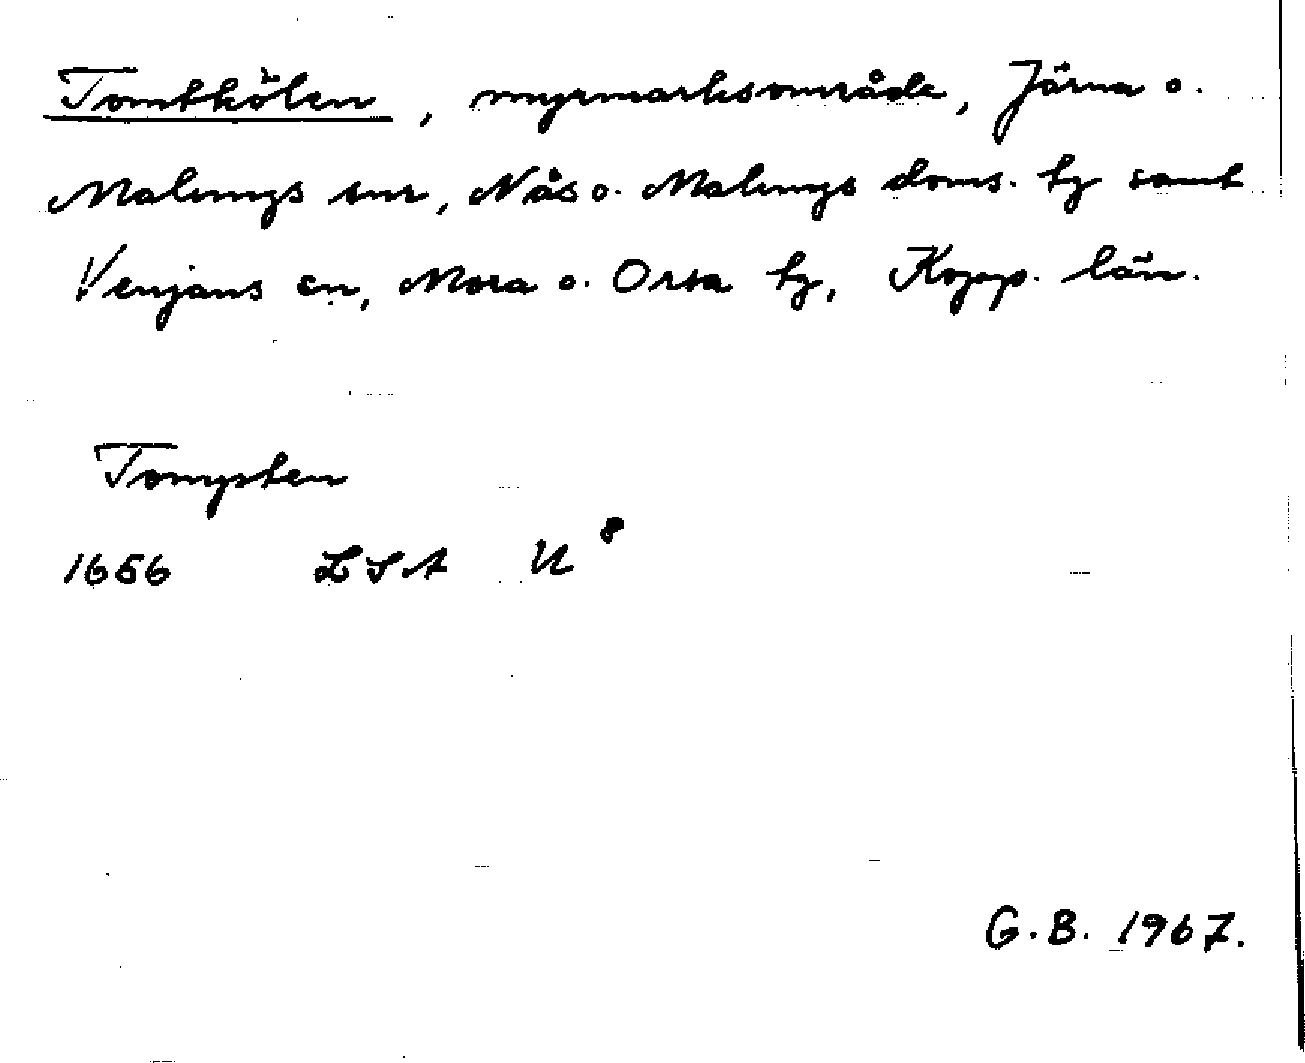 Tomtkölen, myrmarksområde, Järna o.
Malungs snr, Nås o. Malungs doms. tg samt
Venjans sn, Mora o. Orsa tg, Kopp. län.
Tomysten
1656 LSA U 8
G.B. 1967.